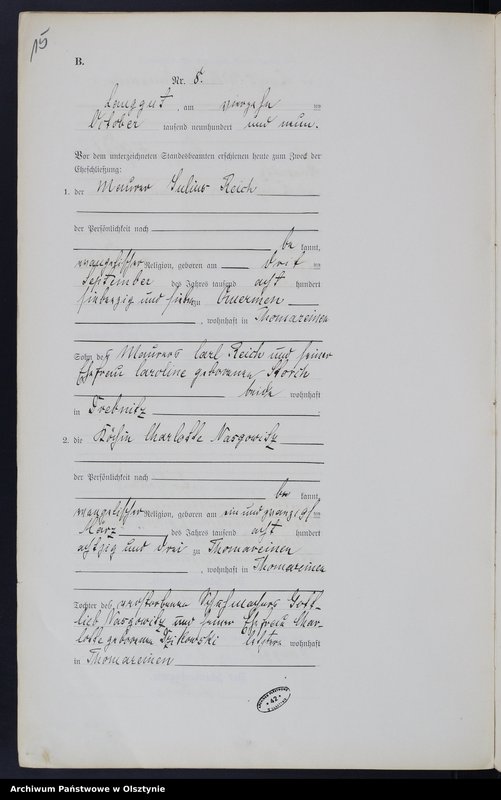 15
B.
Nr. 8.
Langgut, am vierzehn ten
October tausend neunhundert und neun.
Vor dem unterzeichneten Standesbeamten erschienen heute zum Zweck der
Eheschließung:
1. der Maurer Julius Reich
der Persönlichkeit nach
be kannt,
evangelischer Religion, geboren am drit ten
September des Jahres tausend acht hundert
siebenzig und sieben zu
, wohnhaft in Thomareinen
Sohn des Maurers Carl Reich und seiner
Ehefrau Caroline geborenen Storch
beide wohnhaft
in Trebnitz.
2. die Köchin Charlotte Nasgowitz
der Persönlichkeit nach
be kannt,
evangelischer Religion, geboren am ein und zwanzigs ten
März des Jahres tausend acht hundert
achtzig und drei zu Thomareinen
, wohnhaft in Thomareinen
Tochter des verstorbenen Schuhmachers Gott-
lieb Nasgowitz und seiner Ehefrau Char-
lotte geborenen letztere wohnhaft
in Thomareinen
42
Archiwum Państwowe w Olsztynie